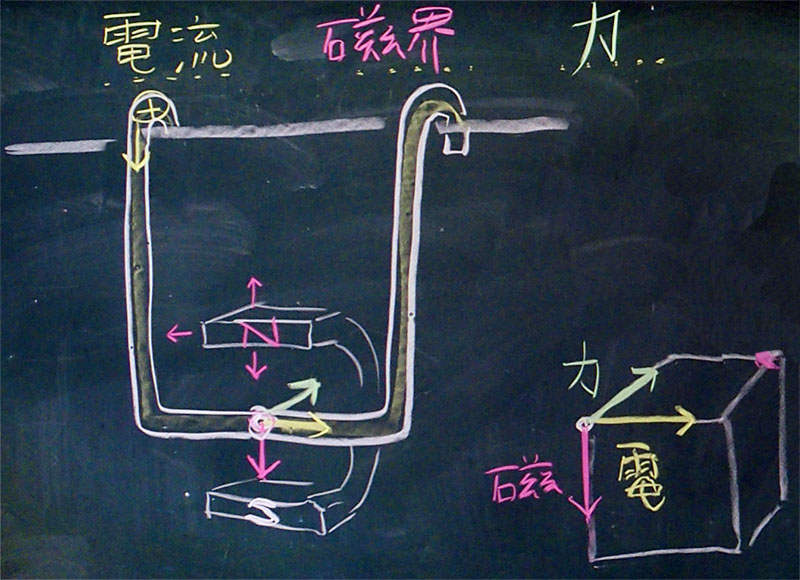 電流 磁界 力
+
N
S
力
磁 電